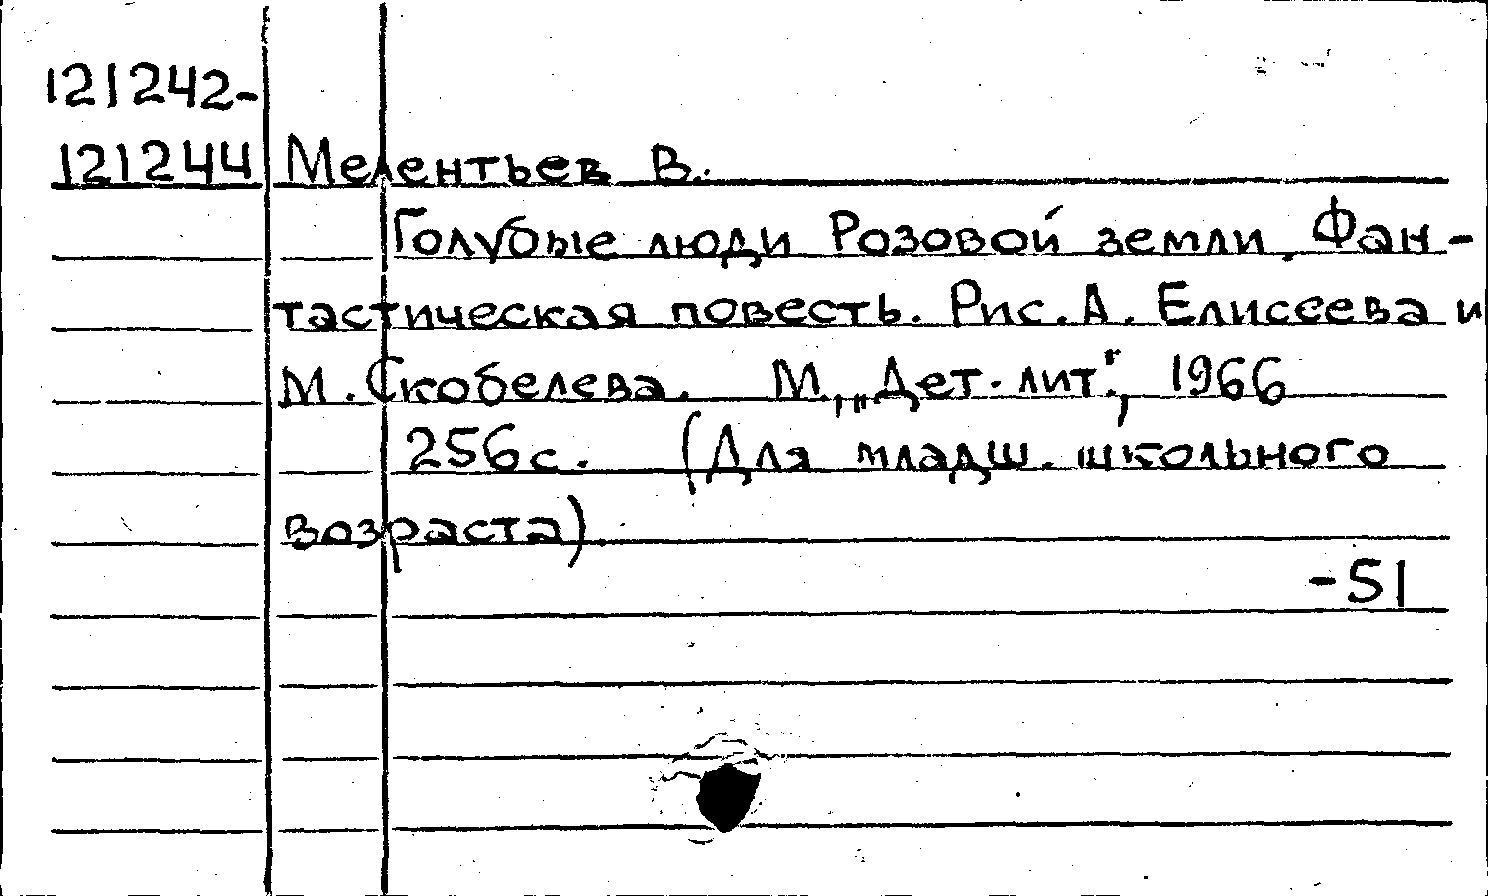 121242-
121244 Мелентьев В.
Голубые люди Розовой земли. Фан-
тастическая повесть. Рис. А. Елисеева и
М. Скобелева. М., „Дет. лит.", 1966
256 с. (Для младш. школьного
возраста).
-51